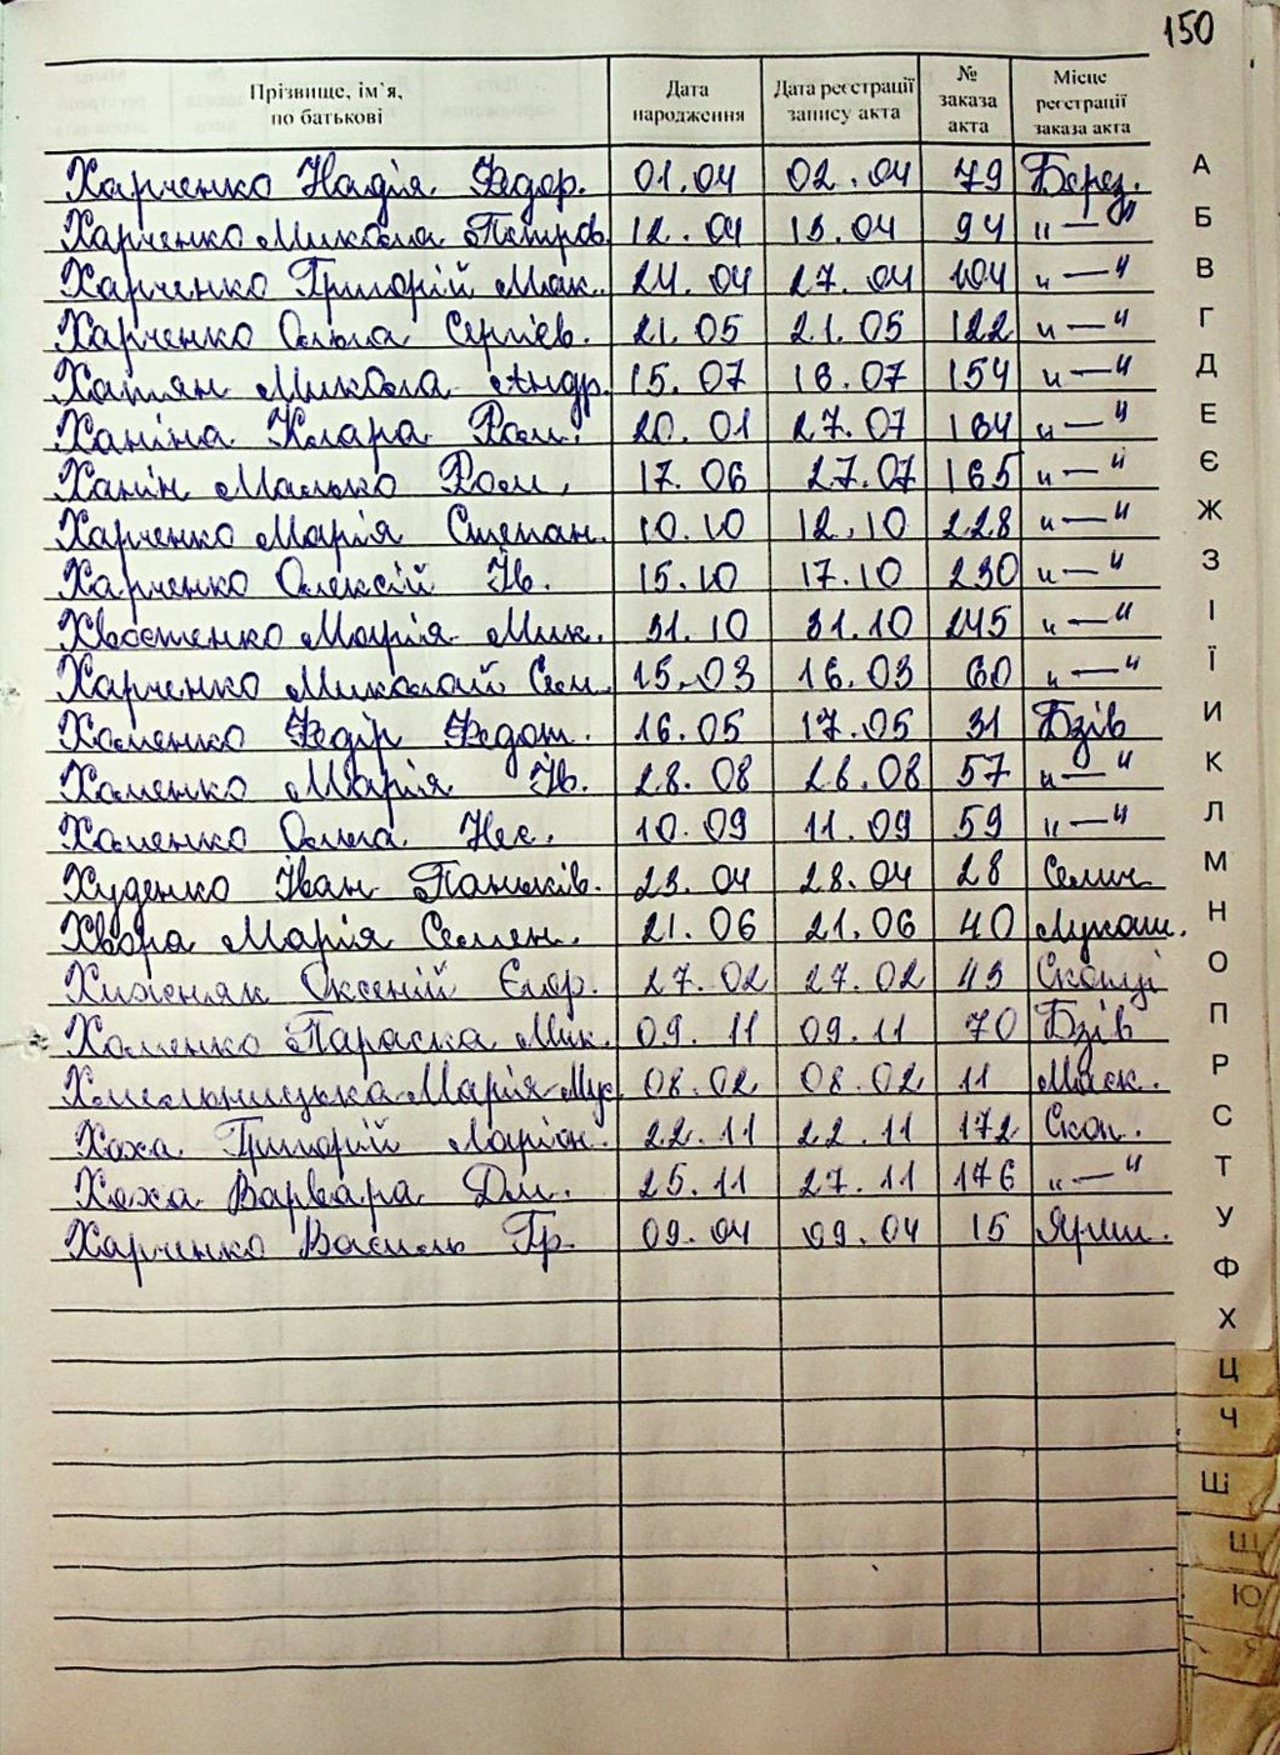 150
Прізвище, ім'я, по батькові Дата народження Дата реєстрації запису акта № заказа акта Місце реєстрації заказа акта
Харченко Надія Федор. 01.04 02.04 79 Берез. А
Харченко Микола Петров. 12.04 13.04 94 "—" Б
Харченко Григорій Мак. 24.04 27.04 104 "—" В
Харченко Ольга Сергіев. 21.05 21.05 122 "—" Г
Микола Андр. 15.07 16.07 154 "—" Д
Ханіна Клара Ром. 20.01 27.07 164 "—" Е
Ханін Ром. 17.06 27.07 165 "—" Є
Харченко Марія Степан. 10.10 12.10 228 "—" Ж
Харченко Олексій Ів. 15.10 17.10 230 "—" З
Хвостенко Марія Мик. 31.10 31.10 245 "—" І
Харченко Миколай Сем. 15.03 16.03 60 "—" Ї
Хоменко Федір Федот. 16.05 17.05 31 Бзів И
Хоменко Марія Ів. 28.08 28.08 57 "—" К
Хоменко Ольга 10.09 11.09 59 "—" Л
Худенко Іван Паньків. 23.04 28.04 28 Селич М
Хвора Марія Семен. 21.06 21.06 40 Лукаш. Н
Хиженяк Оксеній Єгор. 27.02 27.02 43 Скопці О
Хоменко Параска Мик. 09.11 09.11 70 Бзів П
Хмельницька Марія 08.02 08.02 11 Р
Хоха Григорій Маріян. 22.11 22.11 172 Скоп. С
Хоха Варвара Дм. 25.11 27.11 176 "—" Т
Харченко Василь Гр. 09.04 09.04 15 Яреш. У
Ф
Х
Ц
Ч
Ш
Щ
Ю
Я